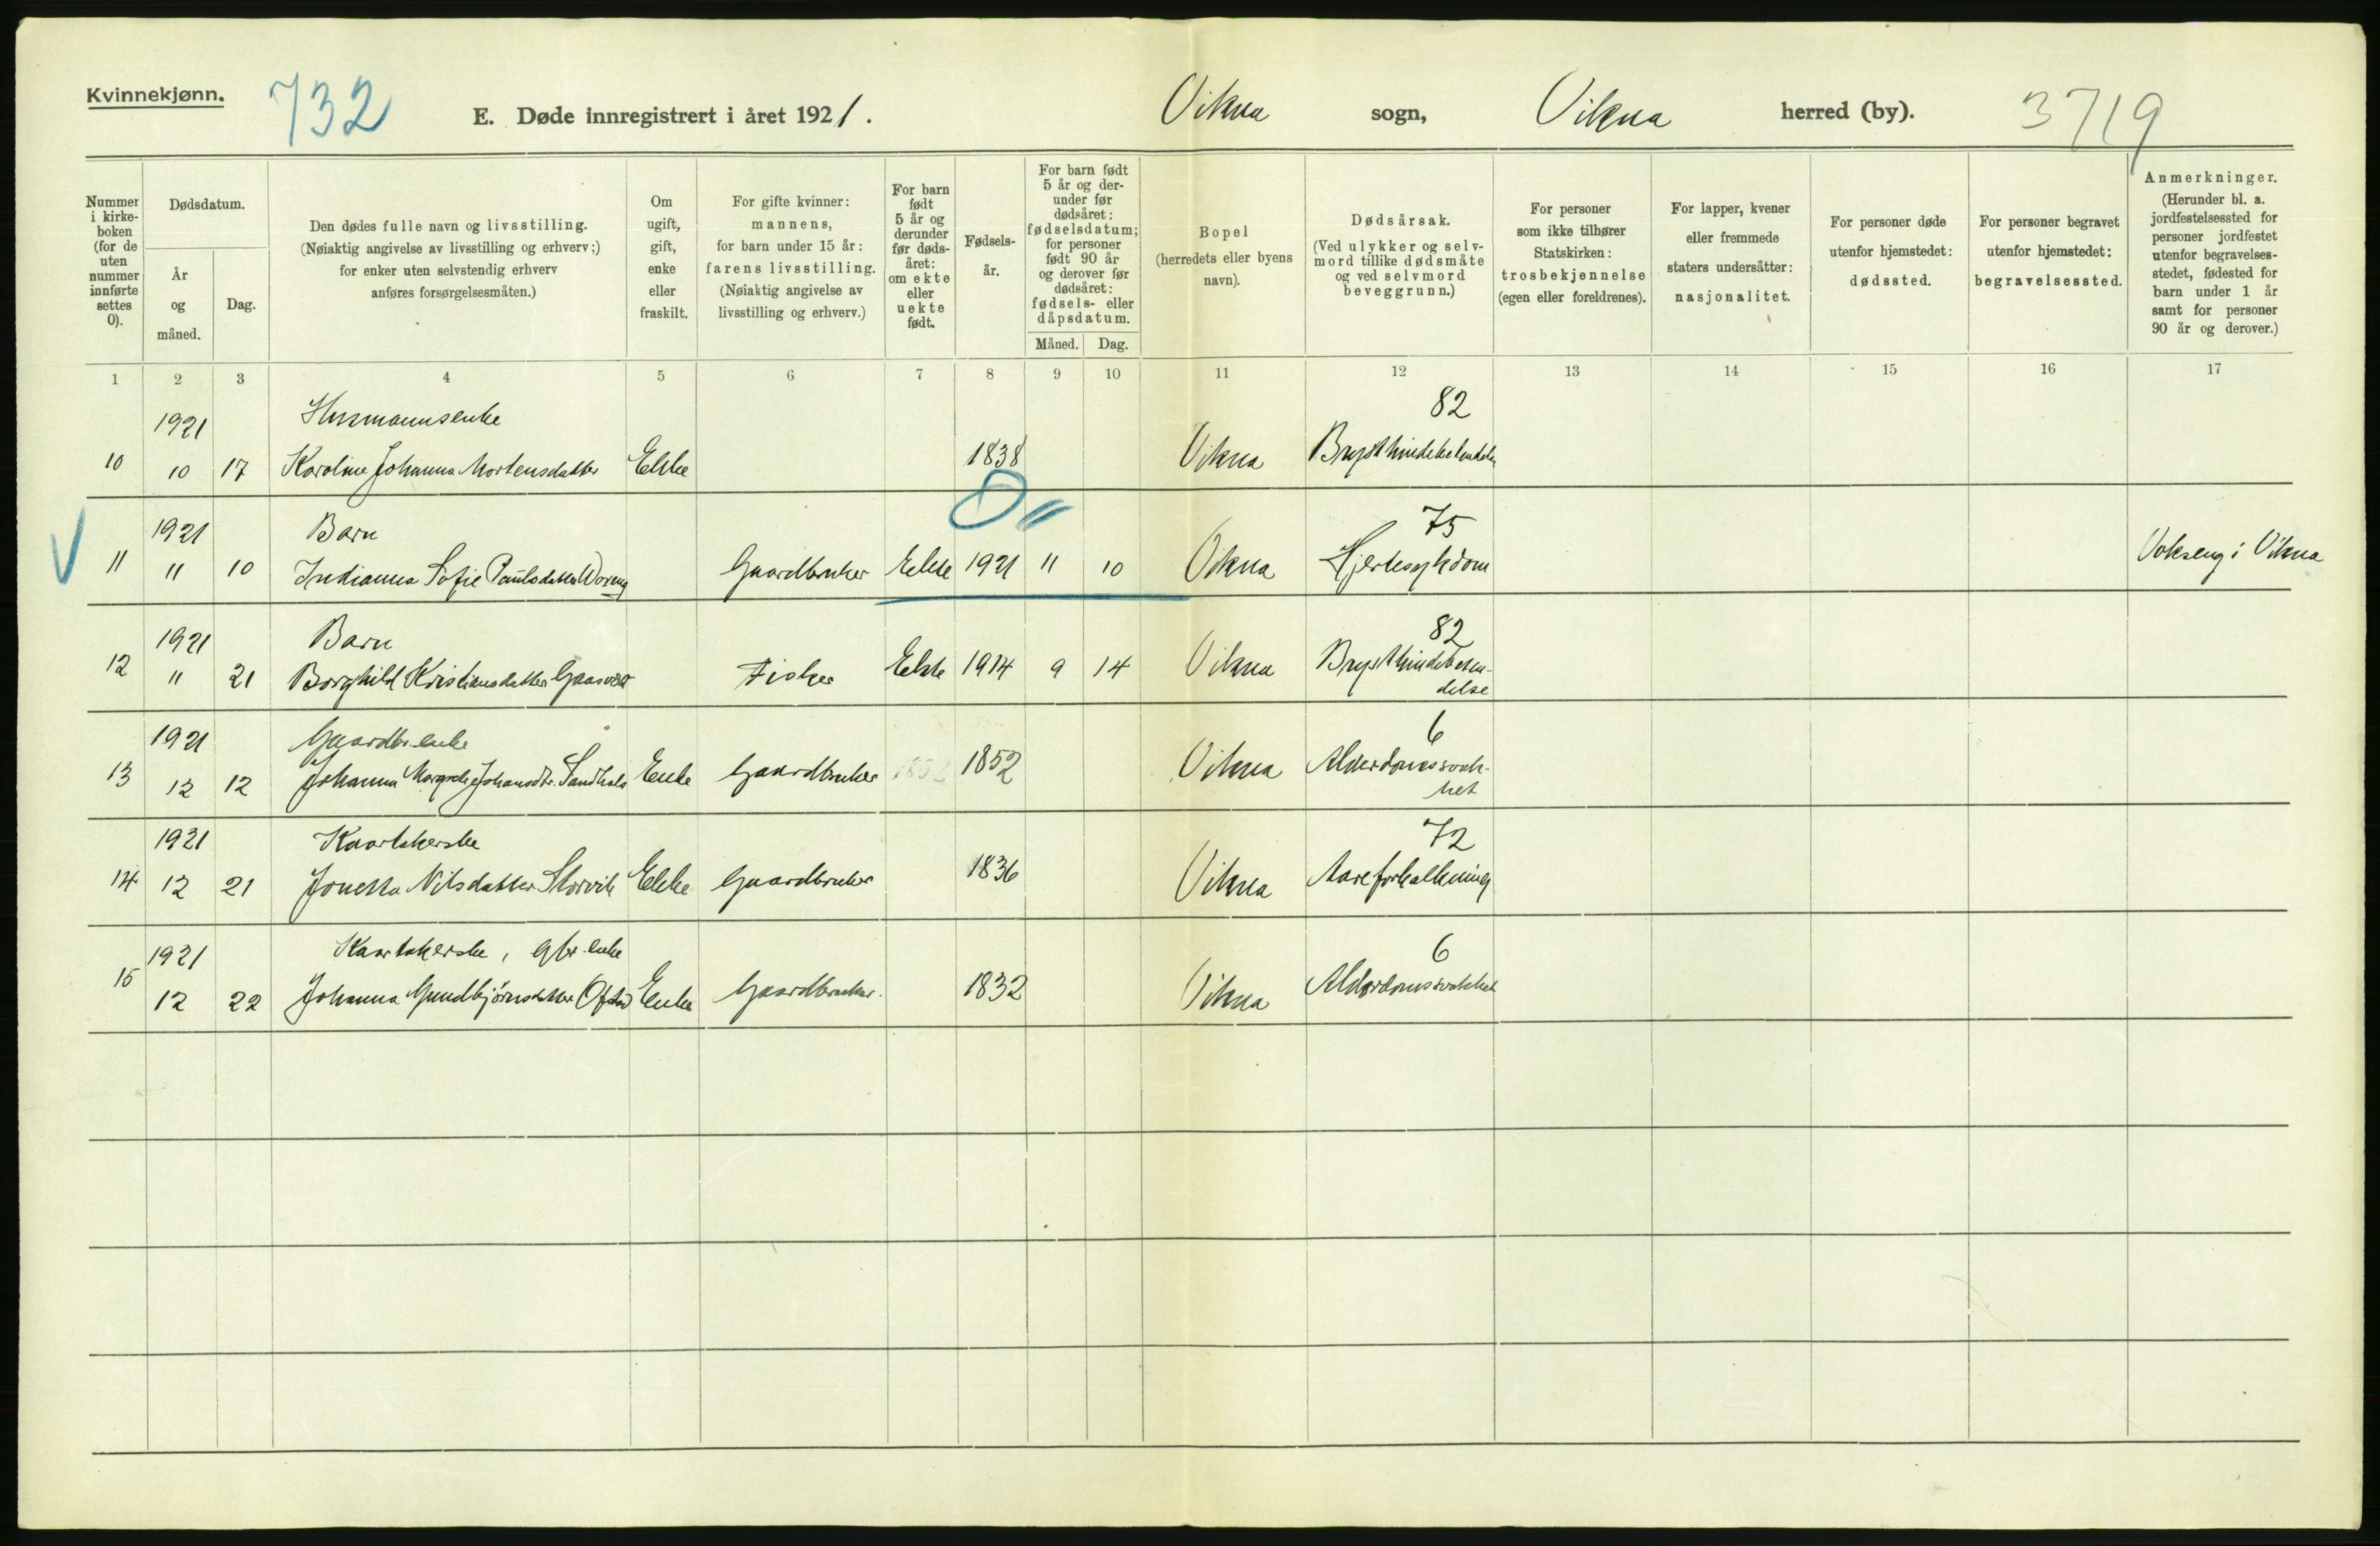 Kvinnekjønn.
732
E. Døde innregistrert i året 1921.
Vikna sogn, Vikna herred (by).
3719
Nummer i kirkeboken (for de uten nummer innførte settes 0).
Dødsdatum.
År og måned.
Dag.
Den dødes fulle navn og livsstilling.
(Nøiaktig angivelse av livsstilling og erhverv;)
for enker uten selvstendig erhverv
anføres forsørgelsesmåten.)
Om ugift, gift, enke eller fraskilt.
For gifte kvinner:
mannens,
for barn under 15 år:
farens livsstilling.
(Nøiaktig angivelse av
livsstilling og erhverv.)
For barn født 5 år og derunder før dødsåret: om ekte eller uekte født.
Fødselsår.
For barn født 5 år og derunder før dødsåret: fødselsdatum; for personer født 90 år og derover før dødsåret: fødsels- eller dåpsdatum.
Måned. Dag.
Bopel
(herredets eller byens
navn).
Dødsårsak.
(Ved ulykker og selvmord tillike dødsmåte og ved selvmord beveggrunn.)
For personer
som ikke tilhører
Statskirken:
trosbekjennelse
(egen eller foreldrenes).
For lapper, kvener
eller fremmede
staters undersåtter:
nasjonalitet.
For personer døde
utenfor hjemstedet:
dødssted.
For personer begravet
utenfor hjemstedet:
begravelsessted.
Anmerkninger.
(Herunder bl. a.
jordfestelsessted for
personer jordfestet
utenfor begravelses-
stedet, fødested for
barn under 1 år
samt for personer
90 år og derover.)
1 2 3 4 5 6 7 8 9 10 11 12 13 14 15 16 17
1921 Husmannsenke 82
10 10 17 Karoline Johanna Mortensdatter Enke 1838 Vikna Brysthindebetendelse
1921 Barn 75
11 11 10 Indianna Sofie Paulsdatter Gaardbruker Ekte 1921 11 10 Vikna Hjertesykdom Vokseng i Vikna
1921 Barn 82
12 11 21 Borghild Kristiansdatter Gaasvær Fisker Ekte 1914 9 14 Vikna Brysthindebeten-
delse
1921 Gaardbr.enke 6
13 12 12 Johanna Margrete Johansdtr. Sandhals Enke Gaardbruker 1852 1852 Vikna Alderdomssvak-
het
1921 Kaartakerske 72
14 12 21 Jonetta Nilsdatter Storvik Enke Gaardbruker 1836 Vikna Aareforkalkning
1921 Kaartakerske, gbr.enke 6
15 12 22 Johanna Gundbjørnsdatter Ofstad Enke Gaardbruker. 1832 Vikna Alderdomssvakhet